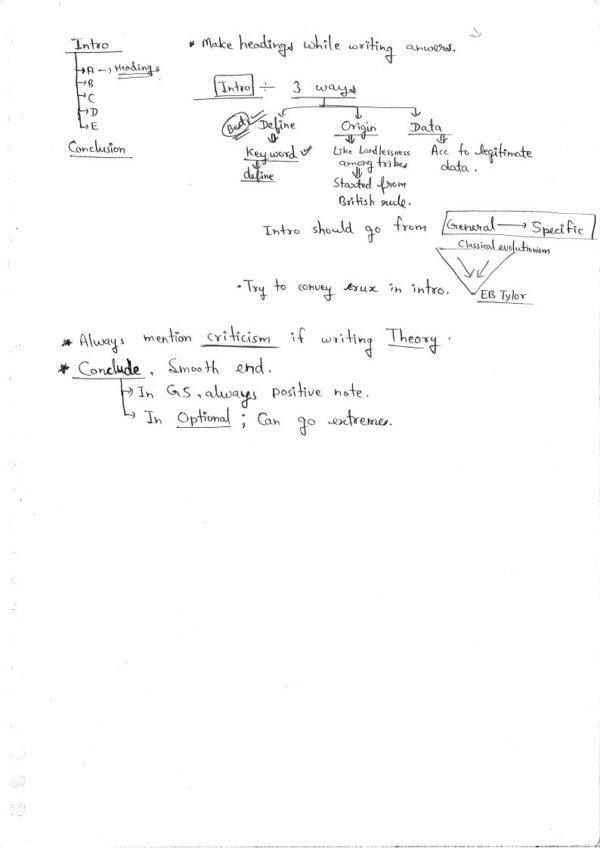 Intro
→ A → Headings
→ B
→ C
→ D
→ E
Conclusion
* Make headings while writing anwers.
Intro ÷ 3 ways
Best ✓ Define Origin Data
Keyword ✓
define
Like Landlessness
among tribes
Started from
British rule.
Acc to legitimate
data.
Intro should go from General → Specific
Classical evolutionism
EB Tylor
• Try to convey crux in intro.
* Always mention criticism if writing Theory.
* Conclude, Smooth end.
→ In GS, always positive note.
→ In Optional ; Can go extremes.